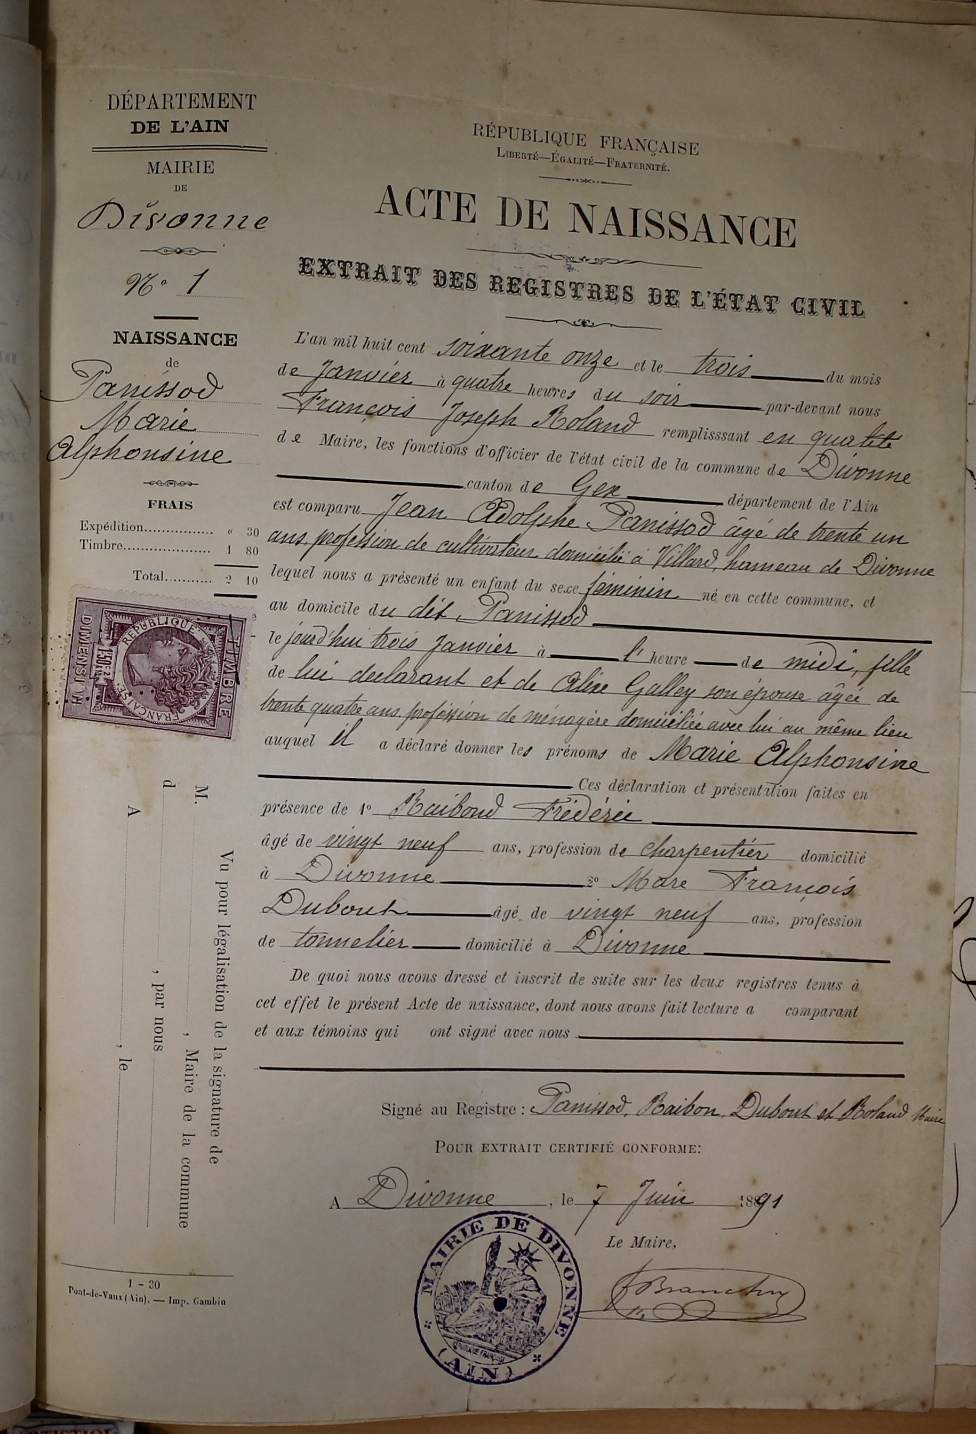 DÉPARTEMENT
DE L'AIN
MAIRIE
DE
Divonne
No 1
NAISSANCE
de
Panissod
Marie
Alphonsine
FRAIS
Expédition............... « 30
Timbre.................... 1 80
Total........... 2 10
TIMBRE
RÉPUBLIQUE
FRANÇAISE
DIMENSION
RÉPUBLIQUE FRANÇAISE
LIBERTÉ—ÉGALITÉ—FRATERNITÉ.
ACTE DE NAISSANCE
EXTRAIT DES REGISTRES DE L'ÉTAT CIVIL
L'an mil huit cent soixante onze et le trois du mois
de Janvier à quatre heures du soir par-devant nous
François Joseph Roland remplisssant en qualité
de Maire, les fonctions d'officier de l'état civil de la commune de Divonne
canton de Gex département de l'Ain
est comparu Jean Adolphe Panissod âgé de trente un
ans, profession de cultivateur domicilié à Villard, hameau de Divonne
lequel nous a présenté un enfant du sexe féminin né en cette commune, et
au domicile du dit Panissod
le jourd'hui trois Janvier à l' heure de midi, fille
de lui declarant et de Alix Galley son épouse âgée de
trente quatre ans, profession de ménagère domiciliée avec lui au même lieu
auquel il a déclaré donner les prénoms de Marie Alphonsine
Ces déclaration et présentation faites en
présence de 1o Raiboud Frédéric
âgé de vingt neuf ans, profession de charpentier domicilié
à Divonne 2o Marc François
Dubout âgé de vingt neuf ans, profession
de tonnelier domicilié à Divonne
De quoi nous avons dressé et inscrit de suite sur les deux registres tenus à
cet effet le présent Acte de naissance, dont nous avons fait lecture a comparant
et aux témoins qui ont signé avec nous
Signé au Registre : Panissod, Raibon, Dubout et Roland Maire
POUR EXTRAIT CERTIFIÉ CONFORME:
A Divonne, le 7 Juin 1891
Le Maire,
MAIRIE DE DIVONNE
(AIN)
Vu pour légalisation de la signature de
M. , Maire de la commune
d , par nous
A , le
1 – 20
Pont-de-Vaux (Ain), — Imp. Gambin